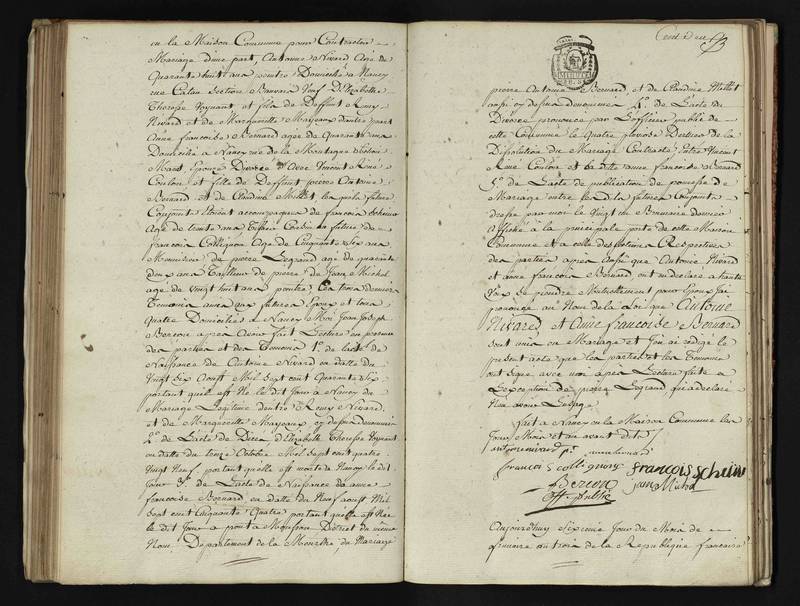 en la Maison Commune pour Contracter
Mariage d'une part, Antoine Nivard Agé de
Quarante huit ans peintre Domicilié à Nancy
rue Section veuf D'Elizabethe
Therese et fils de Deffunt Remy
Nivard et de Marguerite Marjeaux d'autre part
Anne francoise Bernard agée de Quarante ans
Domiciliée à Nancy rue de la Montagne
Epouse Divorcée avec Vincent René
Coulon et fille de Deffunt pierre Antoine
Bernard et de Claudine Millet, les futurs
Conjoints Etoient accompagnés de francois
Agé de trente ans Cousin du future de
francois Collignon Age de Cinquante Six ans
Menuisier de pierre Legrand agé de quarante
deux ans Tailleur de pierre, de Jean Michel
age de Vingt huit ans peintre, Les trois derniers
Temoins amis aux futurs Epoux et tous
quatre Domiciliés à Nancy Moi Jean Joseph
Berson après avoir fait Lecture en presence
des parties et des Temoins 1°. de l'acte de
Naissance de Antoine Nivard en datte du
Vingt Six Aoust Mil Sept cent Quarante Six
portant qu'il est Né le dit Jour à Nancy du
Mariage Legitime d'entre Remy Nivard
et de Marguerite Marjeaux
2°. de L'acte de Deces d'Elizabethe Therese
en datte du onze Octobre Mil Sept cent quatre
Vingt Neuf portant qu'elle est morte à Nancy le dit
Jour 3°. de L'acte de Naissance d'anne
francoise Bernard en datte du Neuf aoust Mil
Sept cent Cinquante Quatre portant qu'elle est Née
le dit Jour à pont a Mousson District du même
Nom, Departement de la Meurthe du Mariage
pierre Antoine Bernard, et de Claudine Millet
4°. de L'acte de
Divorce prononcé par Lofficier public de
cette Commune le quatre pluviose Dernier de la
Dissolution du Mariage Contracté Entre Vincent
René Coulon et la ditte anne francoise Bernard
5°. de L'acte de publication de promesse de
Mariage entre les dits futurs Conjoints
dressé par moi le Vingt un Brumaire dernier
Affiché à la principale porte de cette Maison
Commune et a celle des Sections Respectives
des parties après aussi que Antoine Nivard
et anne francoise Bernard ont declaré a haute
Voix Se prendre Mutuellement pour Epoux J'ai
prononcé au Nom de la Loi que Antoine
Nivard et Anne francoise Bernard
Sont unis en Mariage et J'en ai redigé le
present acte que les parties et les Temoins
ont Signé avec moi après Lecture faite a
L'exception de pierre Legrand qui a declaré
N'en avoir L'usage
fait à Nancy en la Maison Commune les
Jour, Mois et an avant dits
antoine nivard
francois collignon francois
Berson jean Michel
Off. public
Aujourd'huy Sixieme Jour du Mois de
frimaire an trois de la Republique francaise